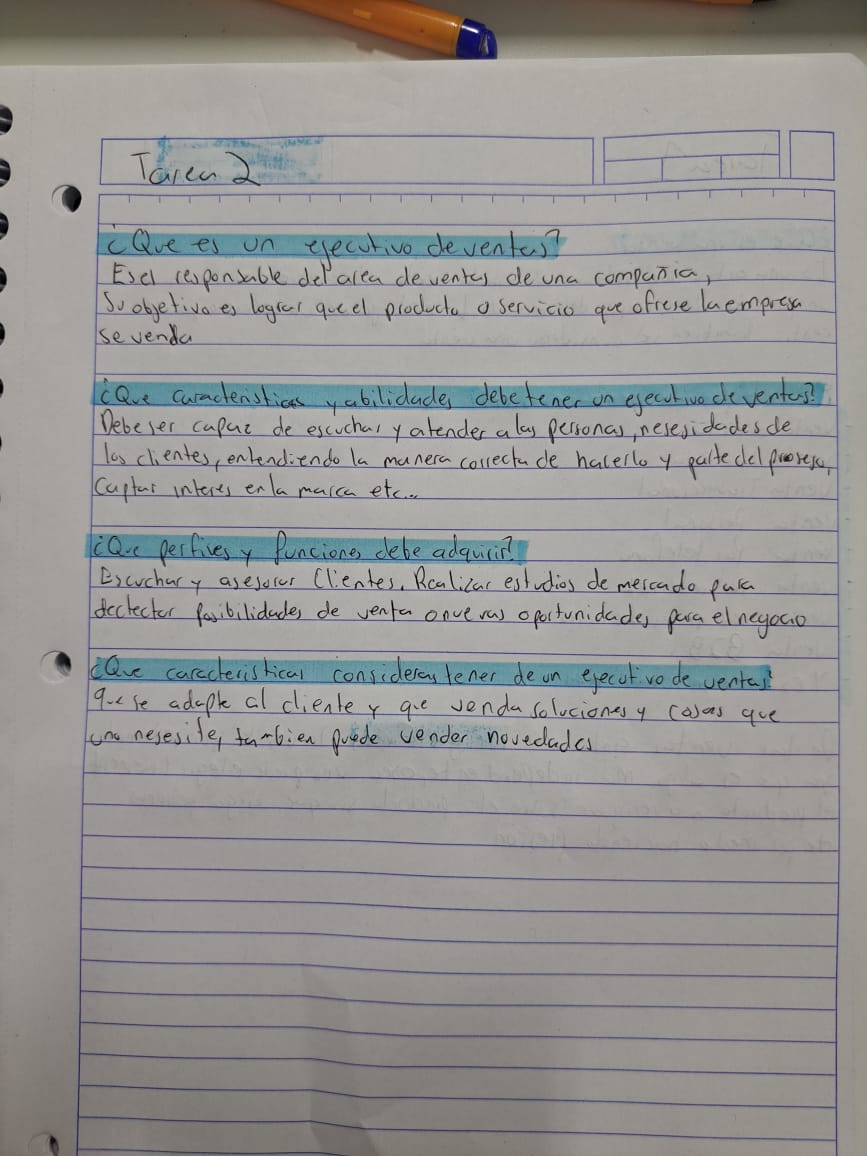 Tarea 2
¿Que es un ejecutivo de ventas?
Es el responsable del area de ventas de una compañia,
Su objetivo es lograr que el producto o servicio que ofrese la empresa
se venda
¿Que caracteristicas y abilidades debe tener un ejecutivo de ventas?
Debe ser capaz de escuchar y atender a las personas, nesesidades de
los clientes, entendiendo la manera correcta de hacerlo y parte del proreso,
Captar interes en la marca etc...
¿Que perfives y funciones debe adquirir?
Escuchar y asesorar Clientes. Realizar estudios de mercado para
dectector posibilidades de venta o nuevas oportunidades para el negocio
¿Que caracteristicas consideras tener de un ejecutivo de ventas?
que se adapte al cliente y que venda soluciones y cosas que
uno nesesite, tambien puede vender novedades